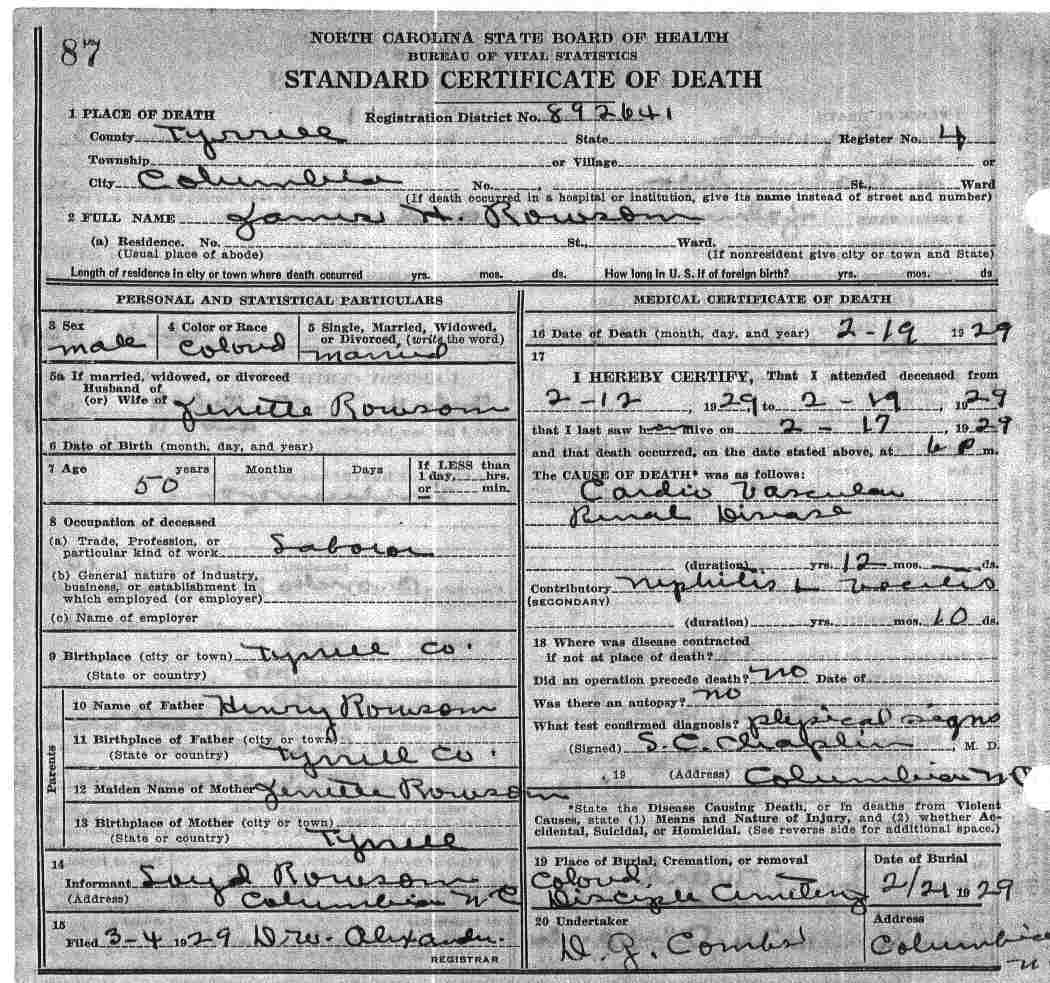 87
NORTH CAROLINA STATE BOARD OF HEALTH
BUREAU OF VITAL STATISTICS
STANDARD CERTIFICATE OF DEATH
1 PLACE OF DEATH Registration District No. 892641
County Tyrrell State Register No. 4
Township or Village or
City Columbia No. , St., Ward
(If death occurred in a hospital or institution, give its name instead of street and number)
2 FULL NAME James H. Rowsom
(a) Residence. No. St., Ward.
(Usual place of abode) (If nonresident give city or town and State)
Length of residence in city or town where death occurred yrs. mos. ds. How long in U. S. if of foreign birth? yrs. mos. ds
PERSONAL AND STATISTICAL PARTICULARS
3 Sex 4 Color or Race 5 Single, Married, Widowed,
or Divorced, (write the word)
male Colored married
5a If married, widowed, or divorced
Husband of
(or) Wife of Zenette Rowsom
6 Date of Birth (month, day, and year)
7 Age years Months Days If LESS than
1 day, hrs.
or min.
50
8 Occupation of deceased
(a) Trade, Profession, or
particular kind of work Labor
(b) General nature of industry,
business, or establishment in
which employed (or employer)
(c) Name of employer
9 Birthplace (city or town) Tyrrell Co.
(State or country)
Parents
10 Name of Father Henry Rowsom
11 Birthplace of Father (city or town)
(State or country) Tyrrell Co.
12 Maiden Name of Mother Zenette Rowsom
13 Birthplace of Mother (city or town)
(State or country) Tyrrell
14
Informant Loyd Rowsom
(Address) Columbia N C
15
Filed 3-4 1929 Alexander.
REGISTRAR
MEDICAL CERTIFICATE OF DEATH
16 Date of Death (month, day, and year) 2-19 1929
17
I HEREBY CERTIFY, That I attended deceased from
2-12, 1929 to 2-19, 1929
that I last saw h alive on 2-17, 1929
and that death occurred, on the date stated above, at 6 P m.
The CAUSE OF DEATH* was as follows:
Cardio Vascular
Renal Disease
(duration) yrs. 12 mos. ds.
Contributory Nephritis
(SECONDARY)
(duration) yrs. mos. 10 ds.
18 Where was disease contracted
if not at place of death?
Did an operation precede death? no Date of
Was there an autopsy? no
What test confirmed diagnosis? physical signs
(Signed) S. C. Chaplin, M. D.
, 19 (Address) Columbia N C
*State the Disease Causing Death, or in deaths from Violent
Causes, state (1) Means and Nature of Injury, and (2) whether Ac-
cidental, Suicidal, or Homicidal. (See reverse side for additional space.)
19 Place of Burial, Cremation, or removal Date of Burial
Colored
Disciple Cemetery 2/21 1929
20 Undertaker Address
D. G. Combs Columbia
N